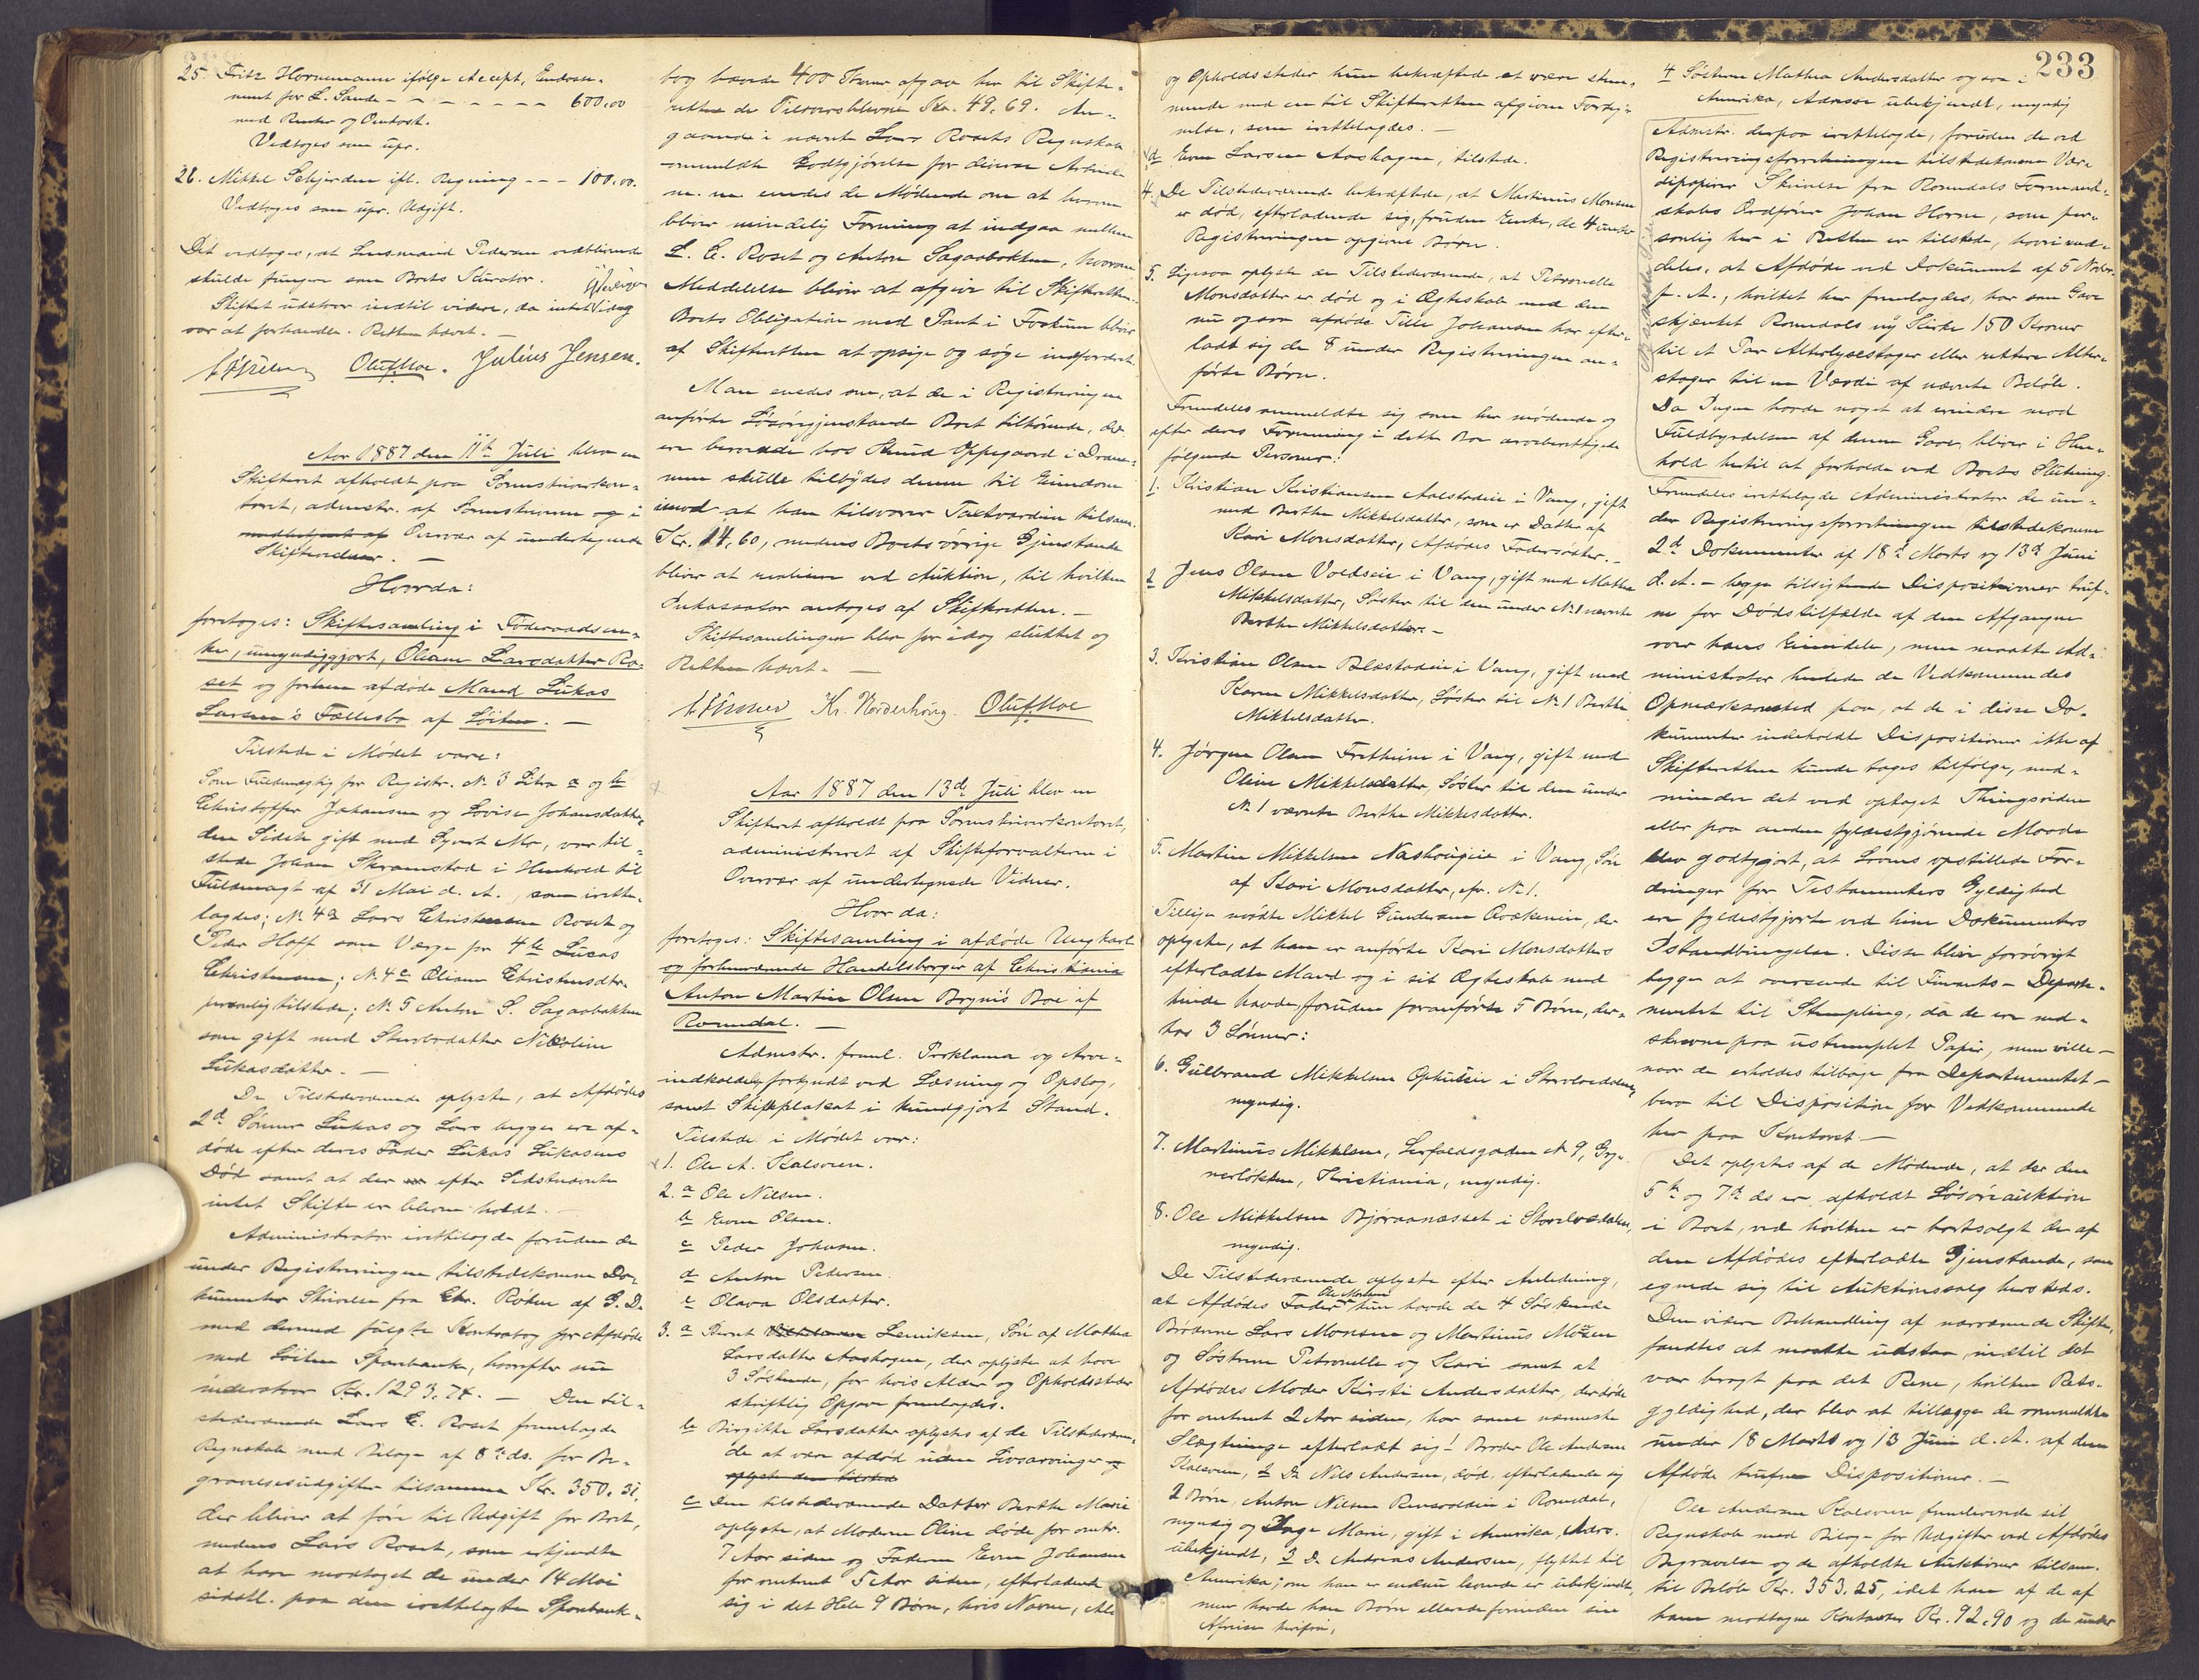 25. Fritz Hornemann ifølge Accept, Endosse-
ment fra L. Sande - - - - - - - 600,00
med Renter og Omkost.
Vedtoges som upr.
26. Mikkel Schjerden ifl. Regning - - - 100,00.
Vedtoges som upr. Udgift.
Det vedtoges, at Lensmand Pedersen vedblivende
skulde fungere som Boets Kurator.
Skiftet udstaar indtil videre, da intet videre idag
var at forhandle. Retten hævet. -
Oluf Moe. Julius Jensen.
Aar 1887 den 11te Juli blev en
Skifteret afholdt paa Sorenskriverkon-
toret, admstr. af Sorenskriveren og i
Overvær af undertegnede
Skiftevidner. -
Hvorda:
foretoges: Skiftesamling i Føderaadsen-
ke, umyndiggjort, Oliane Larsdatter Ro-
set og forhen afdøde Mand Lukas
Larsen's Fællesbo af Løiten. -
Tilstede i Mødet vare:
Som Fuldmægtig for Registr. No 3 Litra a og b
Christoffer Johansen og Lovise Johansdatter,
den Sidste gift med Syvert Moe, var til-
stede Johan Skramstad i Henhold til
Fuldmagt af 31 Mai d. A., som irette-
lagdes; No 4a Lars Christensen Roset og
Peder Hoff som Værge for 4b Lucas
Christensen; No 4c Oliane Christensdtr.
personlig tilstede; No 5 Anton S. Sagaabakken
som gift med Stervbodatter Nikoline
Lukasdatter. -
De Tilstedeværende oplyste, at Afdødes
2de Sønner Lukas og Lars begge ere af-
døde efter deres Fader Lukas Lukasens
Død samt at der efter Sidstnævnte
intet Skifte er bleven holdt. -
Administrator irettelagde foruden de
under Registreringen tilstedekomne Do-
kumenter Skrivelse fra Chr. Røhne af G. D.
med dermed fulgte Kontrabog for Afdøde
med Løiten Sparebank, hvorefter nu
indestaar Kr. 1293.74. - Den til-
stedeværende Lars C. Roset fremlagde
Regnskab med Bilage af 8de ds. for Be-
gravelsesudgifter tilsammen Kr. 350.31,
der bliver at føre til Udgift for Boet,
medens Lars Roset, som erkjendte
at have modtaget de under 14 Mai
sidstl. paa den irettelagte Sparebank-
bog hævede 400 Kroner afgav her til Skifte-
retten de Tiloversblevne Kr. 49.69. An-
gaaende i nævnte Lars Rosets Regnskab
ommeldte Godtgjørelse for diverse Arbeide
m. m. enedes de Mødende om at herom
bliver mindelig Forening at indgaa mellem
L. C. Roset og Anton Sagaabakken, hvorom
Meddelelse bliver at afgive til Skifteretten.
Boets Obligation med Pant i Fockum bliver
af Skifteretten at opsige og søge indfordret.
Man enedes om, at de i Registreringen
anførte Løsøregjenstande Boet tilhørende, der
ere beroende hos Knud Oppegaard i Dram-
men skulle tilbydes denne til Eiendom
imod at han tilsvarer Taxtværdien tilsam.
Kr. 14,60, medens Boets øvrige Gjenstande
bliver at realisere ved Auktion, til hvilken
Inkassator antoges af Skifteretten. -
Skiftesamlingen blev for idag sluttet og
Retten hævet. -
Kr. Norderhoug. Oluf Moe
Aar 1887 den 13de Juli blev en
Skifteret afholdt paa Sorenskriverkontoret,
administreret af Skifteforvalteren i
Overvær af undertegnede Vidner.
Hvorda:
foretoges: Skiftesamling i afdøde Ungkarl
og forhenværende Handelsborger af Christiania
Anton Martin Olsen Bryni's Boe af
Romedal. -
Admstr. freml. Proklama og Arve-
indkaldelse forkyndt ved Læsning og Opslag,
samt Skifteplakat i kundgjort Stand.
Tilstede i Mødet var:
1. Ole A. Kalsveen.
2. a Ole Nilsen.
b Even Olsen.
c Peder Johnsen.
d Anton Pedersen.
e Olava Olsdatter.
3. a Bernt Lenniksen, Søn af Mathea
Larsdatter Aashagen, der oplyste at have
3 Søskende, for hvis Alder og Opholdssteder
skriftlig Opgave fremlagdes.
b Birgitte Larsdatter oplystes af de Tilstedeværen-
de at være afdød uden Livsarvinger og
oplyste den tilsted
c Den tilstedeværende Datter Berthe Marie
oplyste, at Moderen Oline døde for omtr.
7 Aar siden og Faderen Even Johansen
for omtrent 5 Aar siden, efterladende
sig i det Hele 9 Børn, hvis Navne, Al-
233
og Opholdssteder hun bekræftede at være stem-
mende med en til Skifteretten afgiven Forteg-
nelse, som irettelagdes. -
d Even Larsen Aashagen, tilstede.
4. De Tilstedeværende bekræftede, at Martinus Monsen
er død, efterladende sig, foruden Enke, de 4 under
Registreringen opgivne Børn.
5. Ligesaa oplyste de Tilstedeværende, at Petronelle
Monsdatter er død og i Ægteskab med den
nu ogsaa afdøde Tille Johansen har efter-
ladt sig de 8 under Registreringen an-
førte Børn.
Fremdeles anmeldte sig som her mødende og
efter deres Formening i dette Bo arveberettigede
følgende Personer:
1. Kristian Kristiansen Aalstadeie i Vang, gift
med Berthe Mikkelsdatter, som er Datter af
Kari Monsdatter, Afdødes Fadersøster. -
2 Jens Olsen Voldseie i Vang, gift med Mathea
Mikkelsdatter, Søster til den under No 1 nævnte
Berthe Mikkelsdatter. -
3. Kristian Olsen Blæstadeie i Vang, gift med
Karen Mikkelsdatter, Søster til No 1 Berthe
Mikkelsdatter.
4. Jørgen Olsen Fretheime i Vang, gift med
Oline Mikkelsdatter, Søster til den under
No 1 nævnte Berthe Mikkelsdatter.
5. Martin Mikkelsen Nashougeie i Vang, Søn
af Kari Monsdatter, cfr. No 1.
Tillige mødte Mikkel Gundersen, der
oplyste, at han er anførte Kari Monsdatters
efterladte Mand og i sit Ægteskab med
hende havde, foruden foranførte 5 Børn, der-
hos 3 Sønner:
6. Gulbrand Mikkelsen Ophuseie i Storelvedalen,
myndig.
7. Martinus Mikkelsen, No 9, Gry-
nerløkken, Kristiania, myndig.
8. Ole Mikkelsen Bjøraanæsset i Storelvedalen,
myndig.
De Tilstedeværende oplyste efter Anledning,
at Afdødes Fader Ole Monsen kun havde de 4 Søskende
Brødrene Lars Monsen og Martinus Monsen
og Søstrene Petronelle og Kari samt at
Afdødes Moder Kirsti Andersdatter, der døde
for omtrent 2 Aar siden, har som nærmeste
Slægtninge efterladt sig: 1 Broder Ole Andersen
Kalsveen, 2 Do Nils Andersen, død, efterladende sig
2 Børn, Anton Nilsen i Romedal,
myndig og Inge Marie, gift i Amerika, Adrs.
ubekjendt, 3 Do Andreas Andersen, flyttet til
Amerika; om han er endnu levende er ubekjendt,
men havde han Børn allerede forinden sin
Afreise herifra,
4 Søsteren Mathea Andersdatter ogsaa i
Amerika, Adresse ubekjendt, myndig
Admstr. derpaa irettelagde, foruden de ved
Registreringsforretningen tilstedekomne Vær-
dipapirer Skrivelse fra Romedals Formand-
skabs Ordfører Johan Horne, som per-
sonlig her i Retten er tilstede, hvori med-
deles, at Afdøde ved Dokument af 5 Novbr.
f. A., hvilket her fremlagdes, har som Gave
skjænket Romedals ny Kirke 150 Kroner
til et Par Alterlysestager eller rettere Alter-
stager til en Værdi af nævnte Beløb.
Da Ingen havde noget at erindre mod
Fuldbyrdelsen af denne Gave, bliver i Hen-
hold hertil at forholde ved Boets Slutning.
Fremdeles irettelagde Administrator de un-
der Registreringsforretningen tilstedekomne
2de Dokumenter af 18de Marts og 13de Juni
d. A. - begge tilsigtende Dispositioner truf-
ne for Dødstilfælde af den Afgangne
over hans Eiendele, men maatte Ad-
ministrator henlede de Vedkommendes
Opmærksomhed paa, at de i disse Do-
kumenter indeholdte Dispositioner ikke af
Skifteretten kunde tages tilfølge, med-
mindre det ved optaget Thingsvidne
eller paa anden fyldestgjørende Maade
blev godtgjort, at Lovens opstillede For-
dringer for Testamenters Gyldighed
ere fyldestgjorte ved hine Dokumenters
Istandbringelse. Disse bliver forøvrigt
begge at oversende til Finants-Departe-
mentet til Stempling, da de ere ned-
skrevne paa ustemplet Papir, men ville -
naar de erholdes tilbage fra Departementet -
bero til Disposition for Vedkommende
her paa Kontoret. -
Det oplystes af de Mødende, at der den
5te og 7de ds er afholdt Løsøreauktion
i Boet, ved hvilken er bortsolgt de af
den Afdødes efterladte Gjenstande, som
egnede sig til Auktionssalg hersteds.
Den videre Behandling af nærværende Skifte,
fandtes at maatte udstaa, indtil det
var bragt paa det Rene, hvilken Rets-
gyldighed, der blev at tillægge de ommeldte
under 18 Marts og 13 Juni d. A. af den
Afdøde trufne Dispositioner. -
Ole Andersen Kalsveen fremleverede sit
Regnskab med Bilage for Udgifter ved Afdødes
Begravelse og de afholdte Auktioner tilsam.
til Beløb Kr. 353.25, idet han af de af
ham modtagne Kontanter Kr. 92.90 og de under